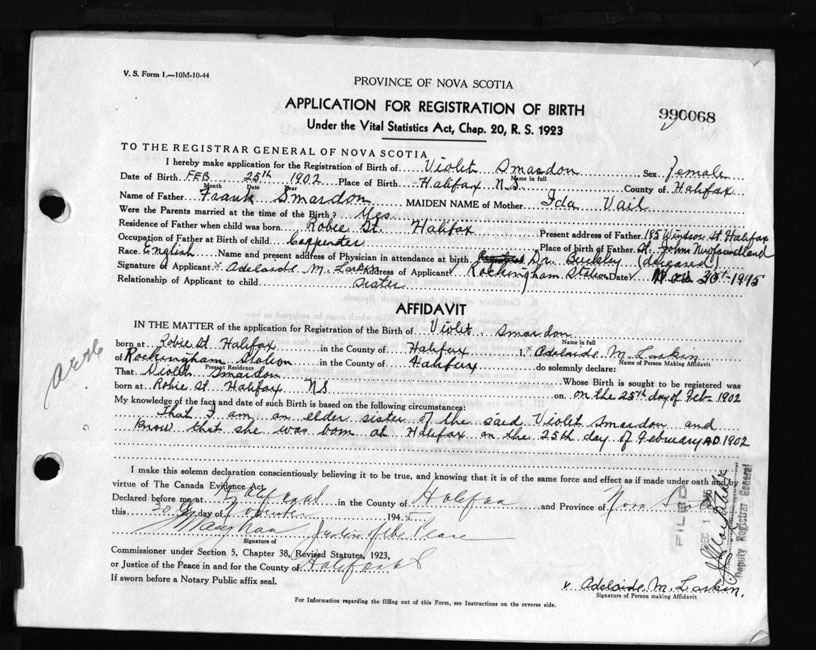 V. S. Form 1.—10M-10-44
PROVINCE OF NOVA SCOTIA
APPLICATION FOR REGISTRATION OF BIRTH
990068
Under the Vital Statistics Act, Chap. 20, R. S. 1923
TO THE REGISTRAR GENERAL OF NOVA SCOTIA
I hereby make application for the Registration of Birth of Violet Smardon Sex Female
Name in full
Date of Birth FEB 25th 1902 Place of Birth Halifax N.S. County of Halifax
Month Date Year
Name of Father Frank Smardon MAIDEN NAME of Mother Ida Vail
Were the Parents married at the time of the Birth? Yes
Residence of Father when child was born Robie St. Halifax Present address of Father 185 Windsor St. Halifax
Occupation of Father at Birth of child Carpenter Place of birth of Father St. John Newfoundland
Race English Name and present address of Physician in attendance at birth Dr. Buckley (deceased)
Signature of Applicant x Adelaide M. Laskin Address of Applicant Rockingham Station Date Nov 30th 1945
Relationship of Applicant to child sister
AFFIDAVIT
IN THE MATTER of the application for Registration of the Birth of Violet Smardon
Name in full
born at Robie St. Halifax in the County of Halifax I, x Adelaide M. Laskin
Name of Person Making Affidavit
of Rockingham Station in the County of Halifax do solemnly declare:
Present Residence
That Violet Smardon Whose Birth is sought to be registered was
born at Robie St. Halifax NS on on the 25th day of Feb. 1902
My knowledge of the fact and date of such Birth is based on the following circumstances:
That I am an elder sister of the said Violet Smardon and
know that she was born at Halifax on the 25th day of February A.D. 1902
I make this solemn declaration conscientiously believing it to be true, and knowing that it is of the same force and effect as if made under oath and by
virtue of The Canada Evidence Act.
Declared before me at Halifax in the County of Halifax and Province of Nova Scotia
this 30 day of November 1945
Justice of the Peace
Signature of
Commissioner under Section 5, Chapter 38, Revised Statutes, 1923,
or Justice of the Peace in and for the County of Halifax
If sworn before a Notary Public affix seal.
x Adelaide M. Laskin.
Signature of Person making Affidavit
For Information regarding the filling out of this Form, see Instructions on the reverse side.
FILED
DEC 1
Deputy Registrar General